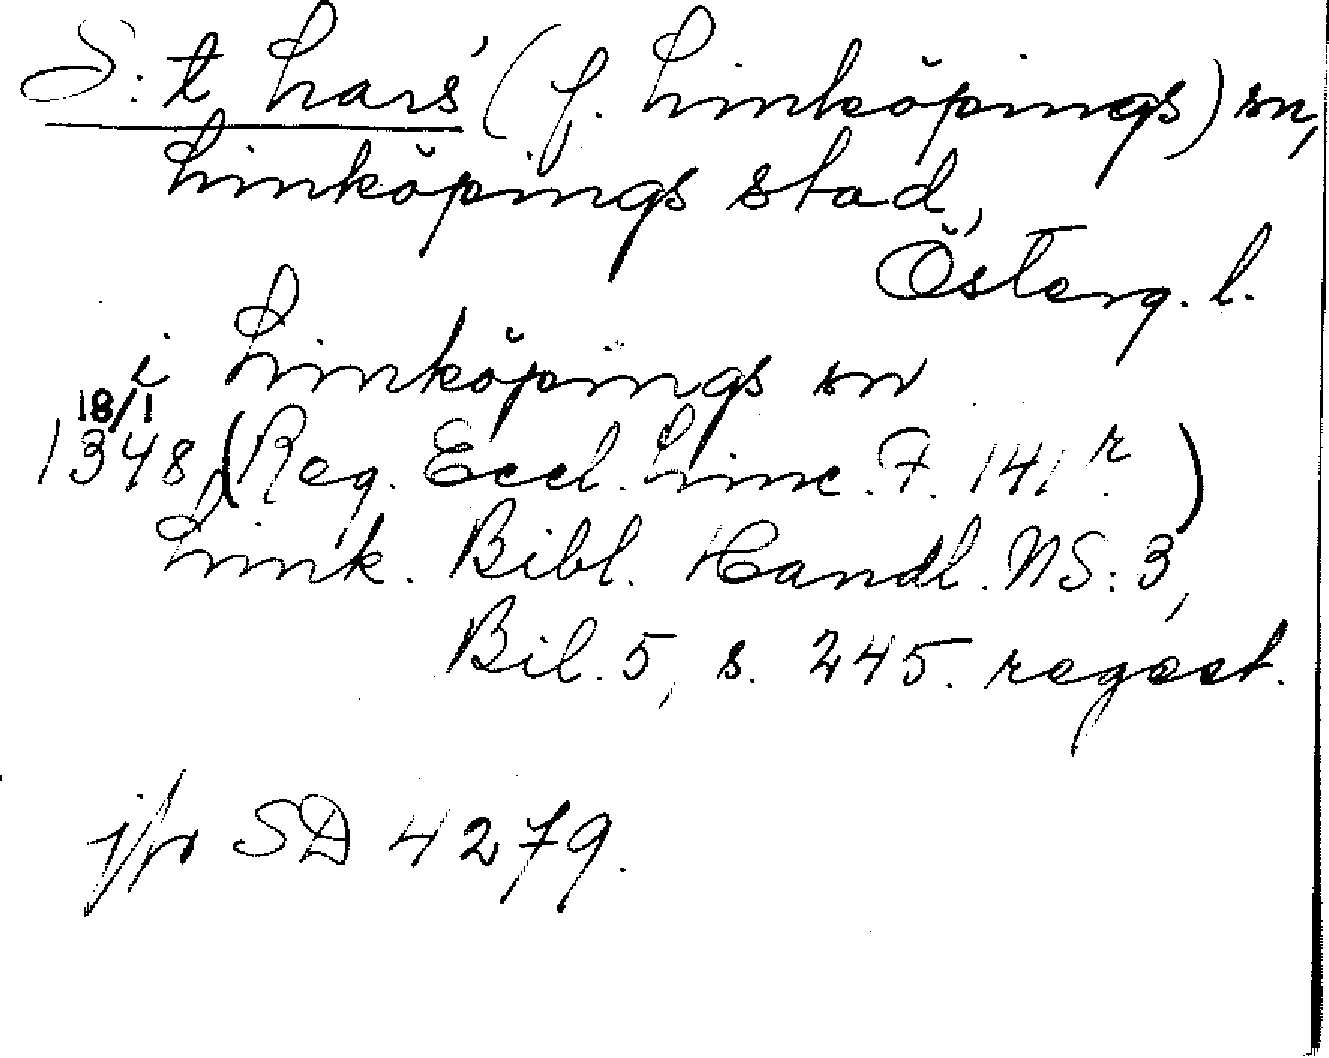 S:t Lars' (f. Linköpings) sn,
Linköpings stad,
Österg. l.
i Linköpings sn
18/1
1348 (Reg. Eccl. Linc. F. 141 r.)
Link. Bibl. Handl. NS: 3,
Bil. 5, s. 245. regest.
jfr SD 4279.